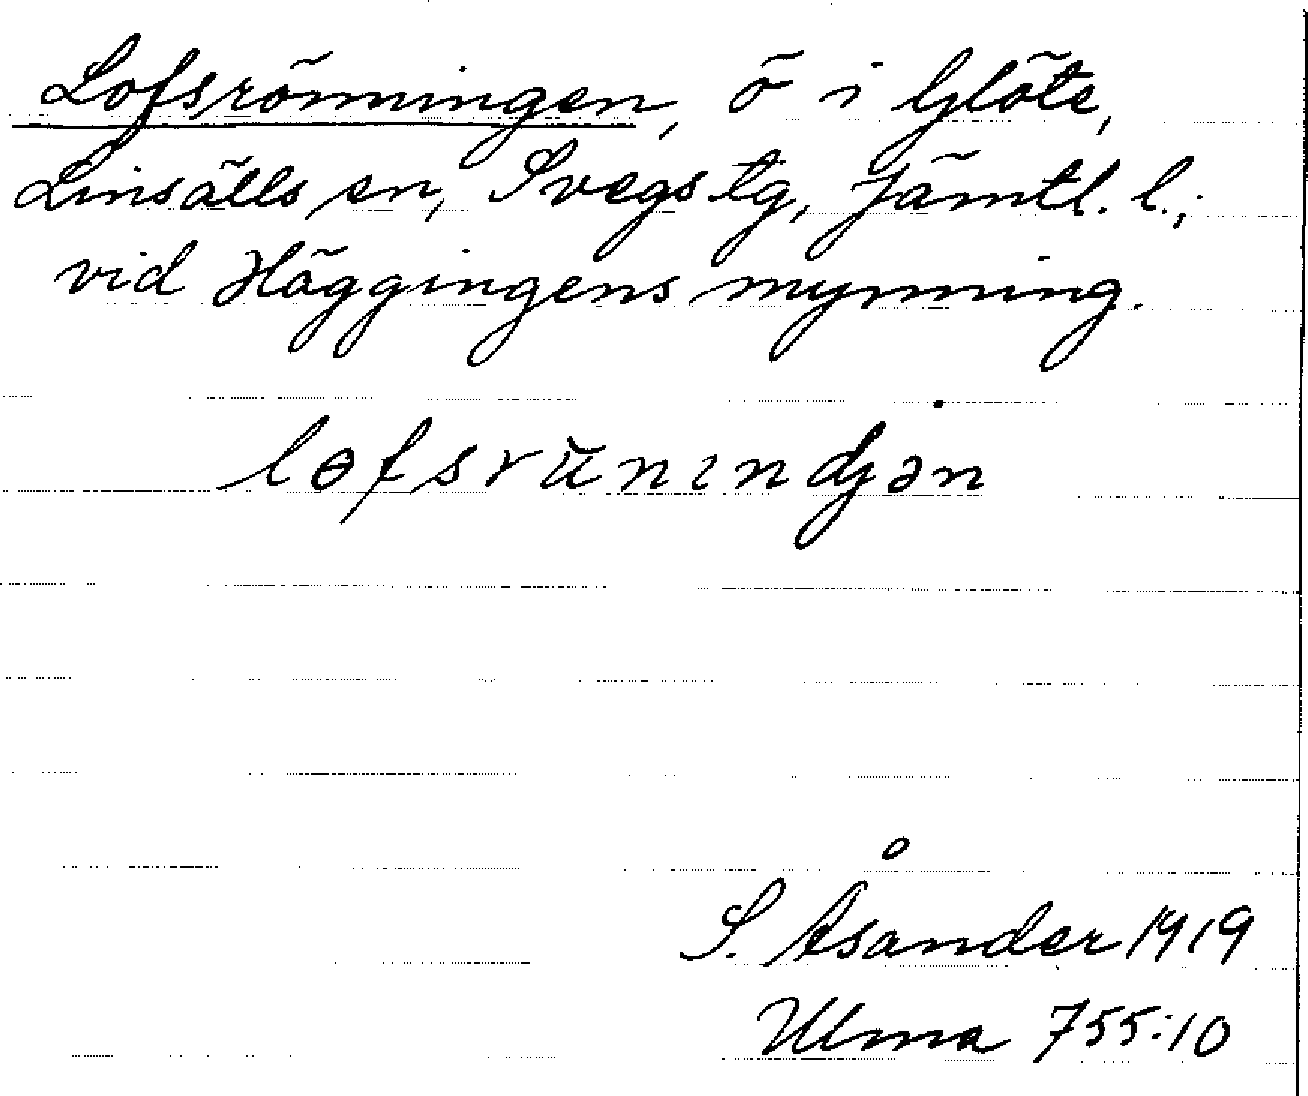 Lofsrönningen, ö i Glöte,
Linsälls sn, Svegs tg, Jämtl. l.;
vid Häggingens mynning.
lɵfsrünındjən
S. Åsander 1919
Ulma 755:10